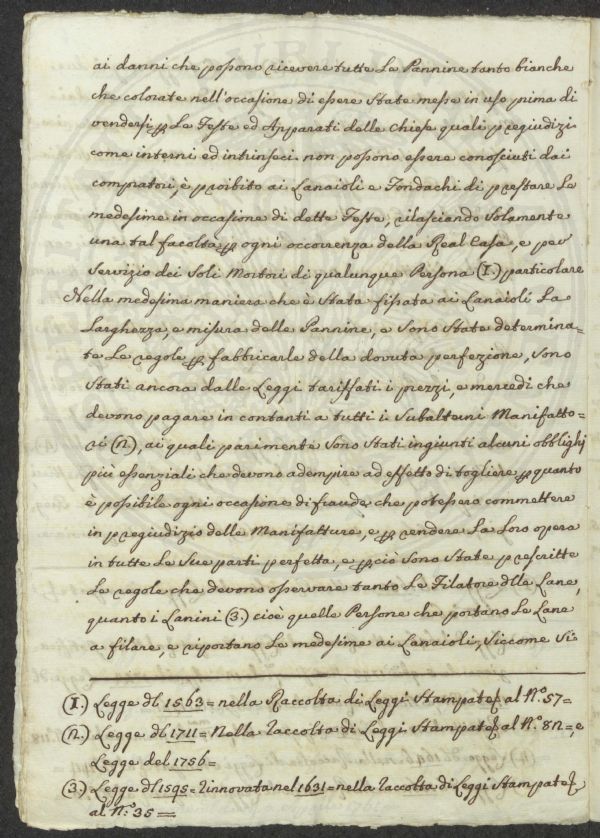 ai danni che possono ricevere tutte le Pannine tanto bianche
che colorate nell'occasione di essere state messe in uso prima di
vendersi, p le Feste ed Apparati delle Chiese quali pregiudizi
come interni ed intrinseci non possono essere conosciuti dai
compratori, è proibito ai Lanaioli e Fondachi di prestare le
medesime in occasione di dette Feste, rilasciando solamente
una tal facoltà p ogni occorrenza della Real Casa, e per
servizio dei soli Mortori di qualunque Persona (1.) particolare
Nella medesima maniera che è stata fissata ai Lanaioli la
Larghezza, e misura delle Pannine, e sono state determina=
te le regole p fabbricarle della dovuta perfezione, sono
stati ancora dalle Leggi tariffati i prezzi, e mercedi che
devono pagare in contanti a tutti i subalterni Manifatto=
ri (2.), ai quali parimente sono stati ingiunti alcuni obblighi
più essenziali che devono adempire ad effetto di togliere p quanto
è possibile ogni occasione di fraude che potessero commettere
in pregiudizio delle Manifatture, e p rendere la loro opera
in tutte le sue parti perfetta, e pciò sono state prescritte
le regole che devono osservare tanto le Filatore dlle Lane,
quanto i Lanini (3.) cioè quelle Persone che portano le Lane
a filare, e riportano le medesime ai Lanaioli, siccome si
(1.) Legge dl 1563 = nella Raccolta di Leggi Stampate al N.o 57 =
(2.) Legge dl 1711 = Nella raccolta di Leggi Stampate al N.o 82 =, e
Legge del 1756 =
(3.) Legge dl 1595 = rinnovata nel 1631 = nella raccolta di Leggi Stampate
al N.o 35 =